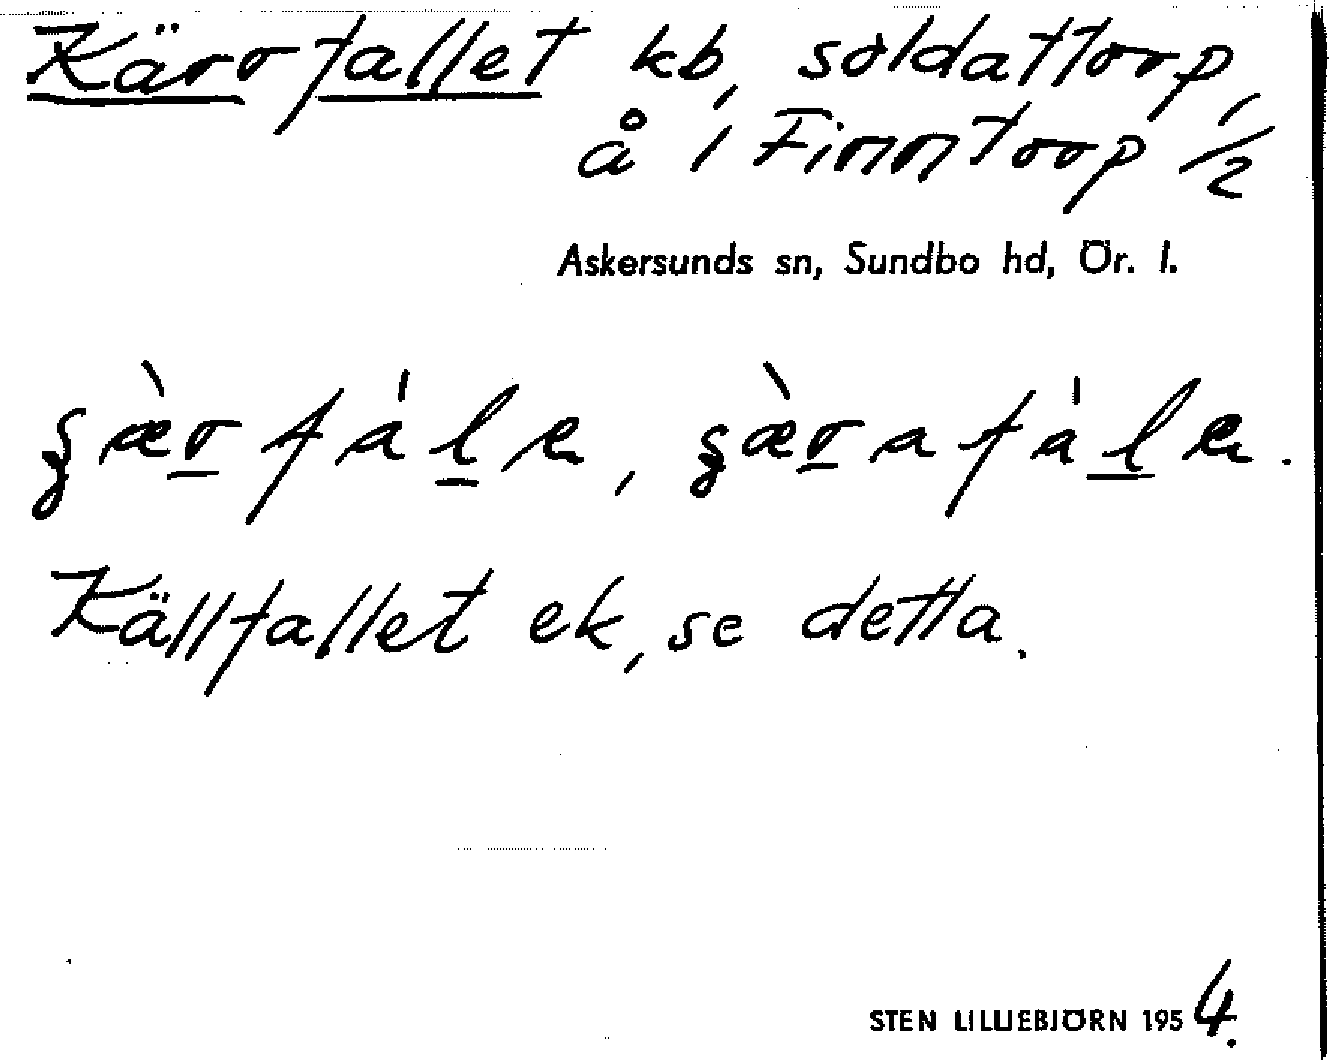 Kärrfallet kb, soldattorp,
å i Finntorp 1/2
Askersunds sn, Sundbo hd, Ör. l.
Källfallet ek, se detta.
STEN LILLIEBJÖRN 1954.